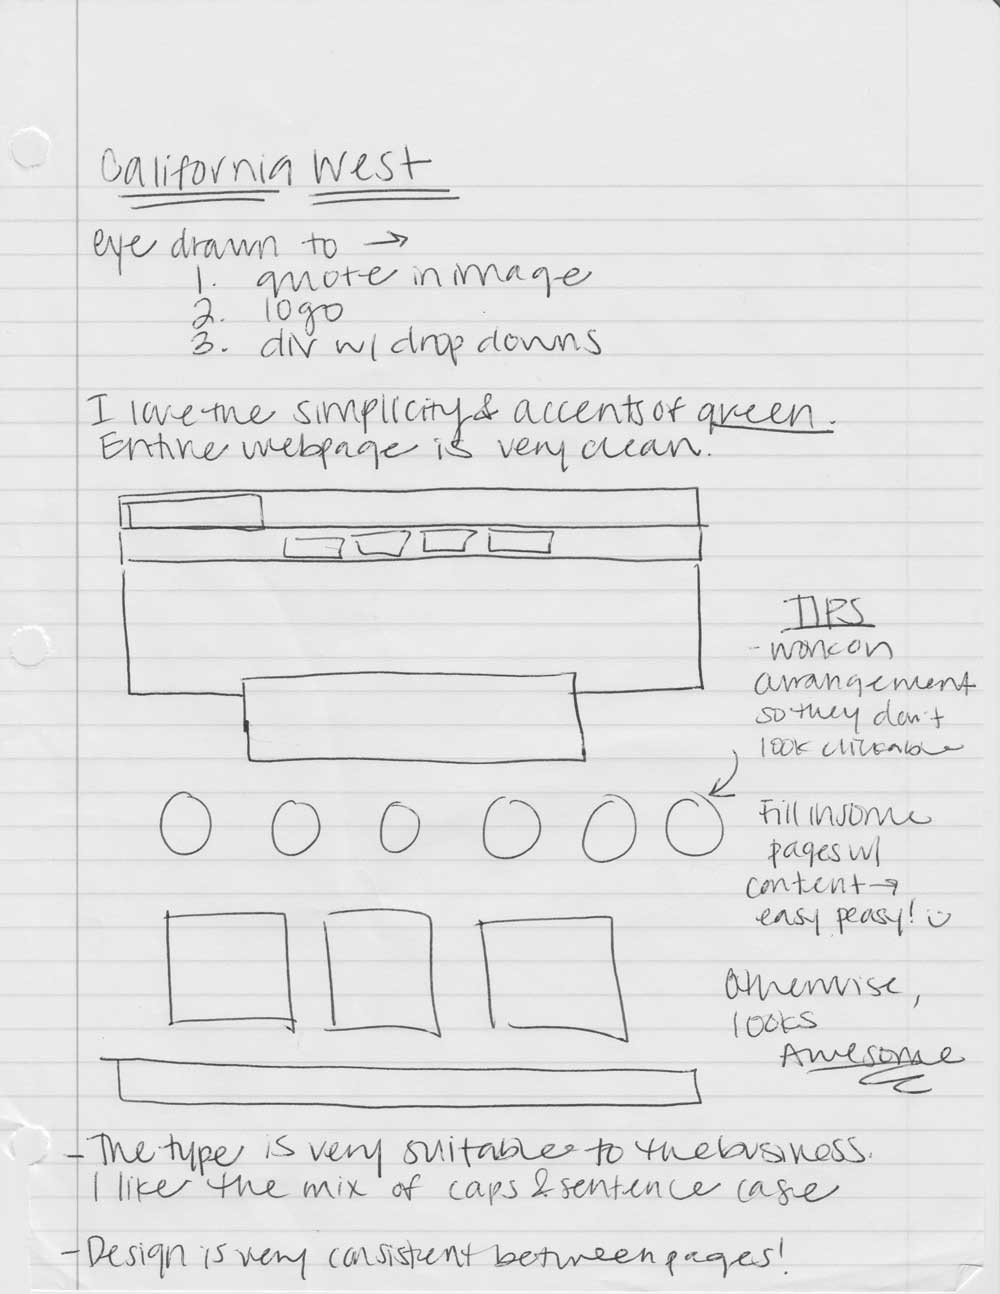 California West
eye drawn to →
1. quote in image
2. logo
3. div w/ drop downs
I love the simplicity & accents of green.
Entire webpage is very clean.
TIPS
- work on
arrangement
so they don't
look clickable
Fill in some
pages w/
content →
easy peasy! :)
Otherwise,
looks
Awesome
- The type is very suitable to the business.
I like the mix of caps & sentence case
- Design is very consistent between pages!